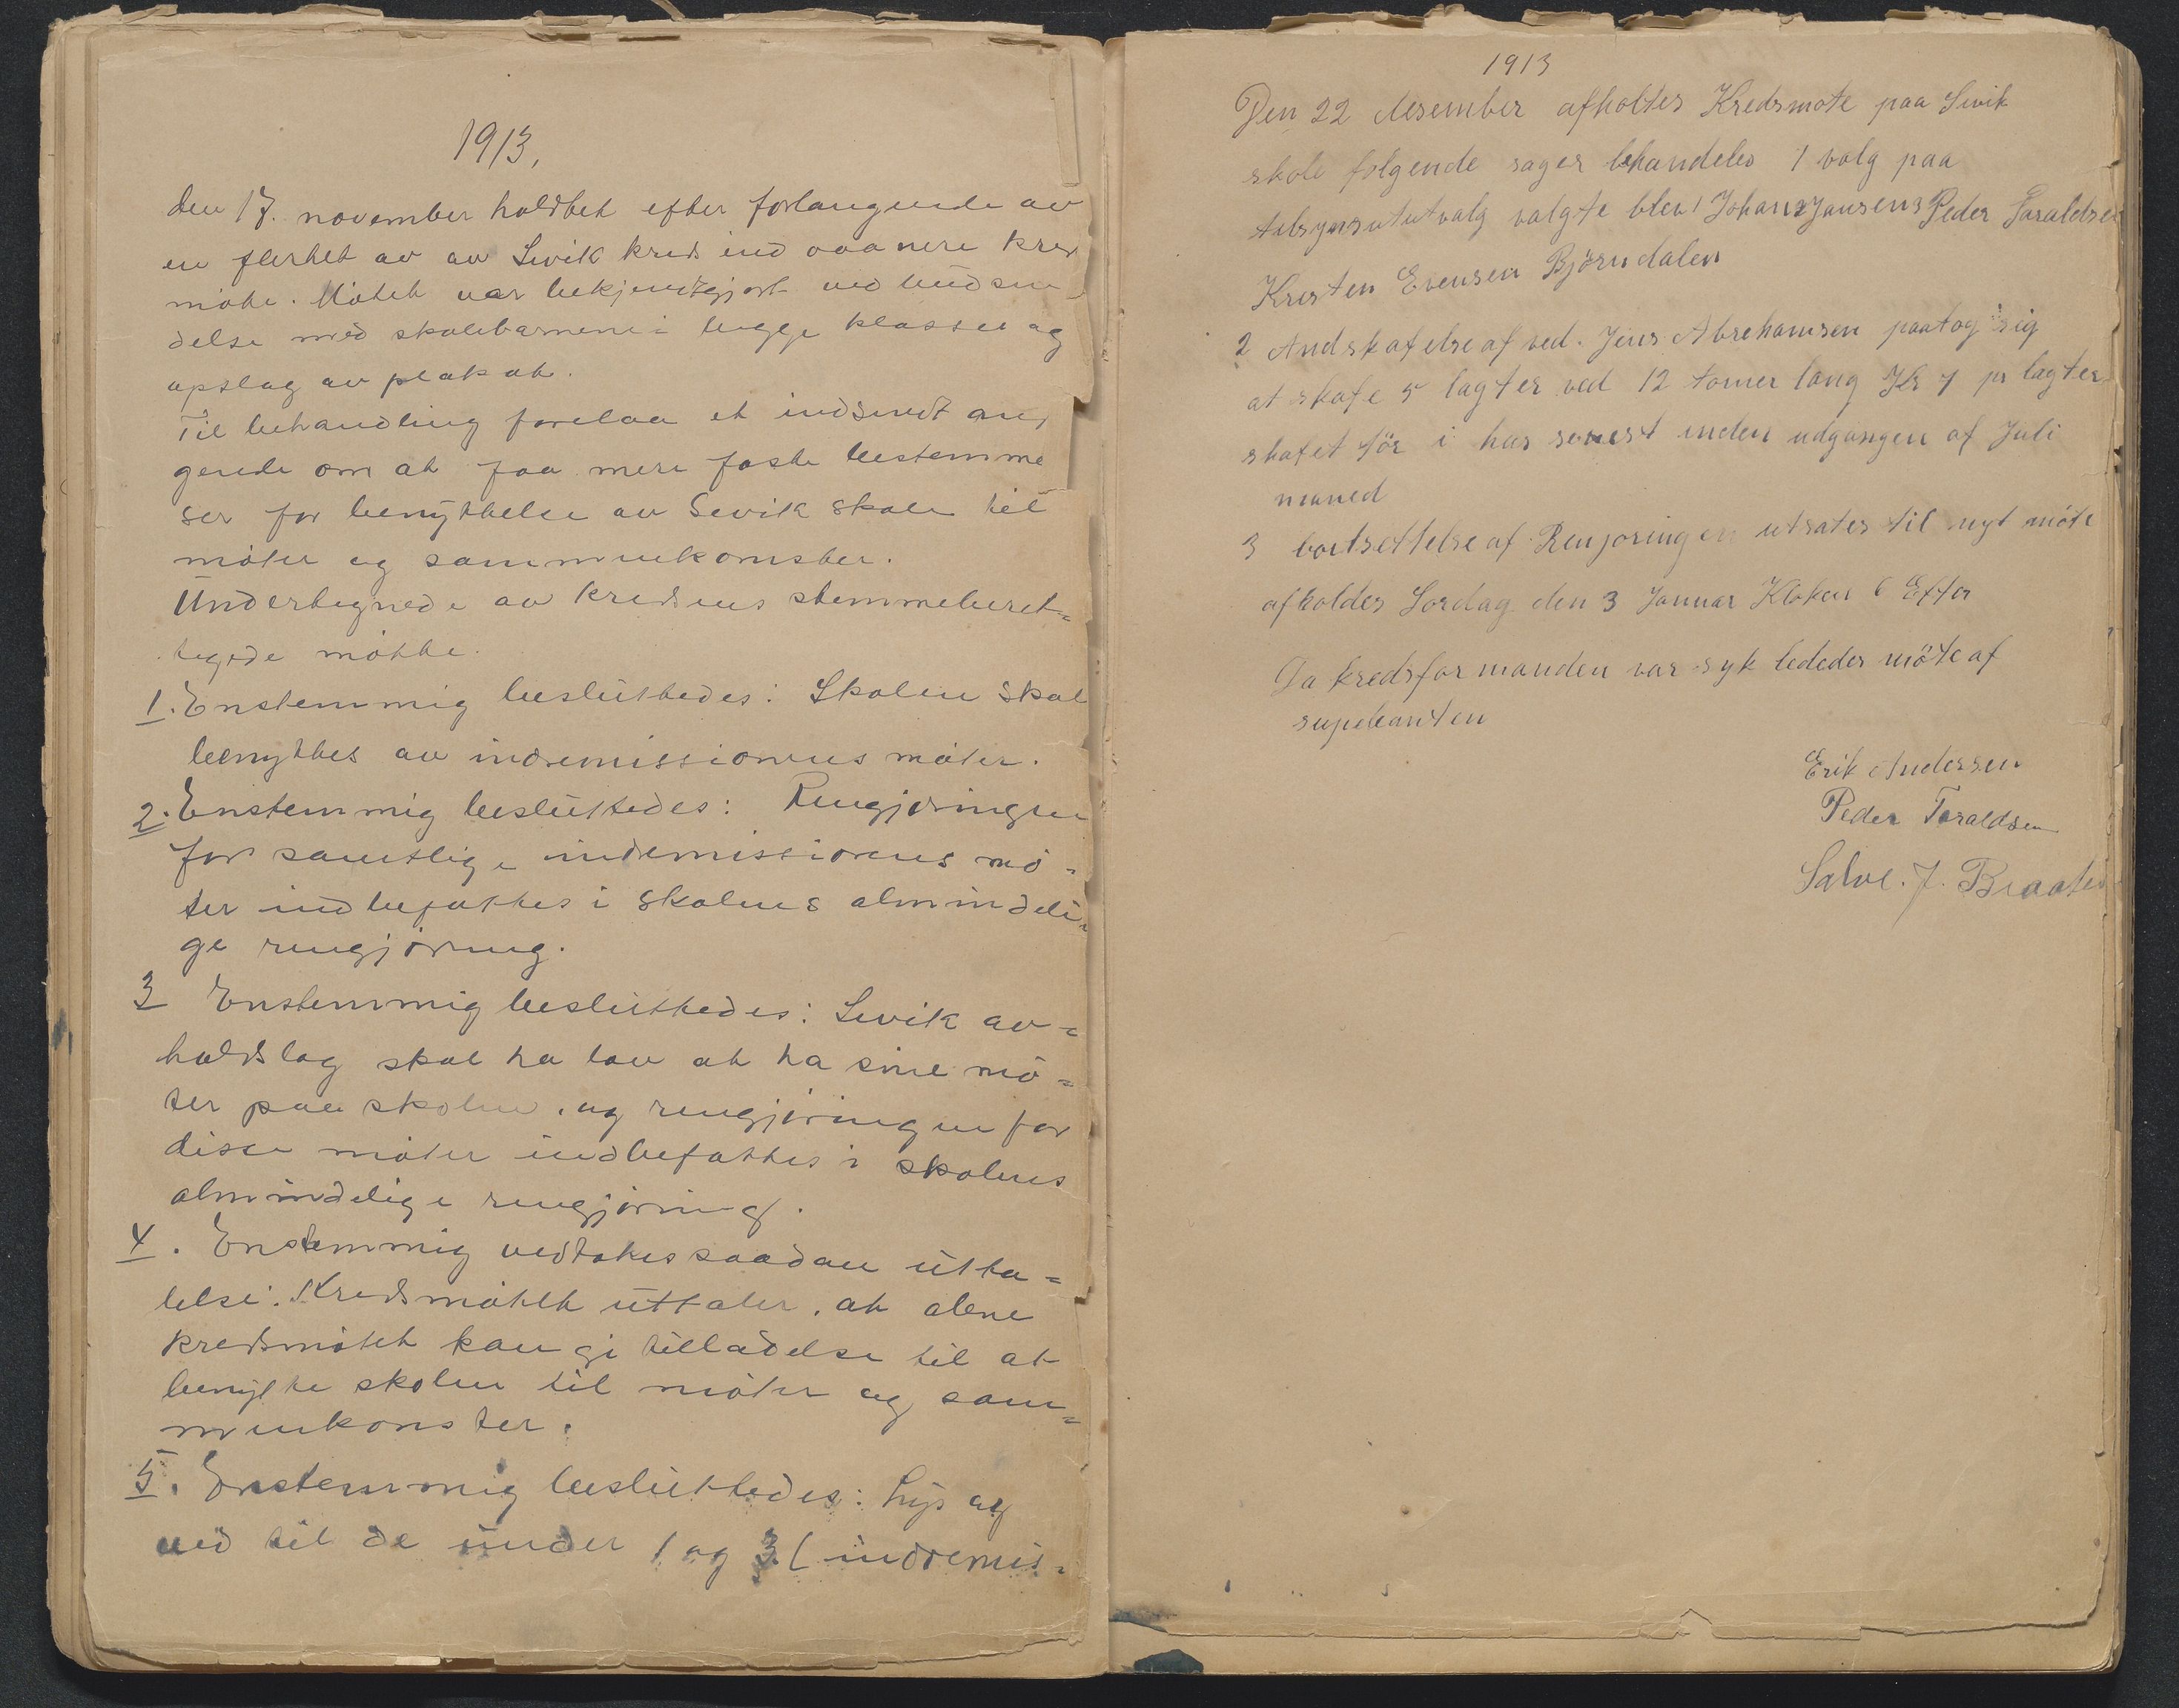 1913,
den 17. november holdtet efter forlangende av
en flerhet av av Sevik kreds ind vaanere kreds
møte. Møtet var bekjendtgjort ved budsen-
delse med skolebarnene i begge klasser og
opslag av plakat.
Til behandling forelaa et indsendt an,
gende om at faa mere faste bestemme
ser for benyttelse av Sevik skole til
møter og sammenkomster.
Undertegnede av kredsens stemmeberet=
tigede møtte.
1. Enstemmig besluttedes: Skolen skal
benyttes av indremissionens møter.
2. Enstemmig besluttedes: Rengjøringen
for samtlige indremissionens mø=
ter indbefattes i skolens almindeli=
ge rengjøring.
3 Enstemmig besluttedes: Sevik av=
holdslag skal ha lov at ha sine mø=
ter paa skolen, og rengjøringen for
disse møter indbefattes i skolens
almindelige rengjøring.
4. Enstemmig vedtokes saadan utta=
lelse: Kredsmøtet uttaler, at alene
kredsmøtet kan gi tilladelse til at
benytte skolen til møter og sam=
menkomster.
5. Enstemmig besluttedes: Lys og
ved til de under 1 og 3 (indremis=
1913
Den 22 desember afholtes Kredsmøte paa Sevik
skole følgende sager behandeles 1 valg paa
tilsynsutvalg valgte blev 1 Johan 2 Jansen 3 Peder Taraldsen
Kresten Evensen Bjørndalen
2 Andskafelse af ved. Jens Abrehamsen paatog sig
at skafe 5 lagter ved 12 tomer lang Kr 7 pr lagter
skafet tör i hus senest inden udgangen af Juli
maned
3 bortsettelse af Renjøringen utsates til nyt möte
afholdes Lørdag den 3 Januar Kloken 6 Efter
Da kredsformanden var syk lededes möte af
supeleanten
Erik Andersen
Peder Taraldsen
Salve. J. Braaten